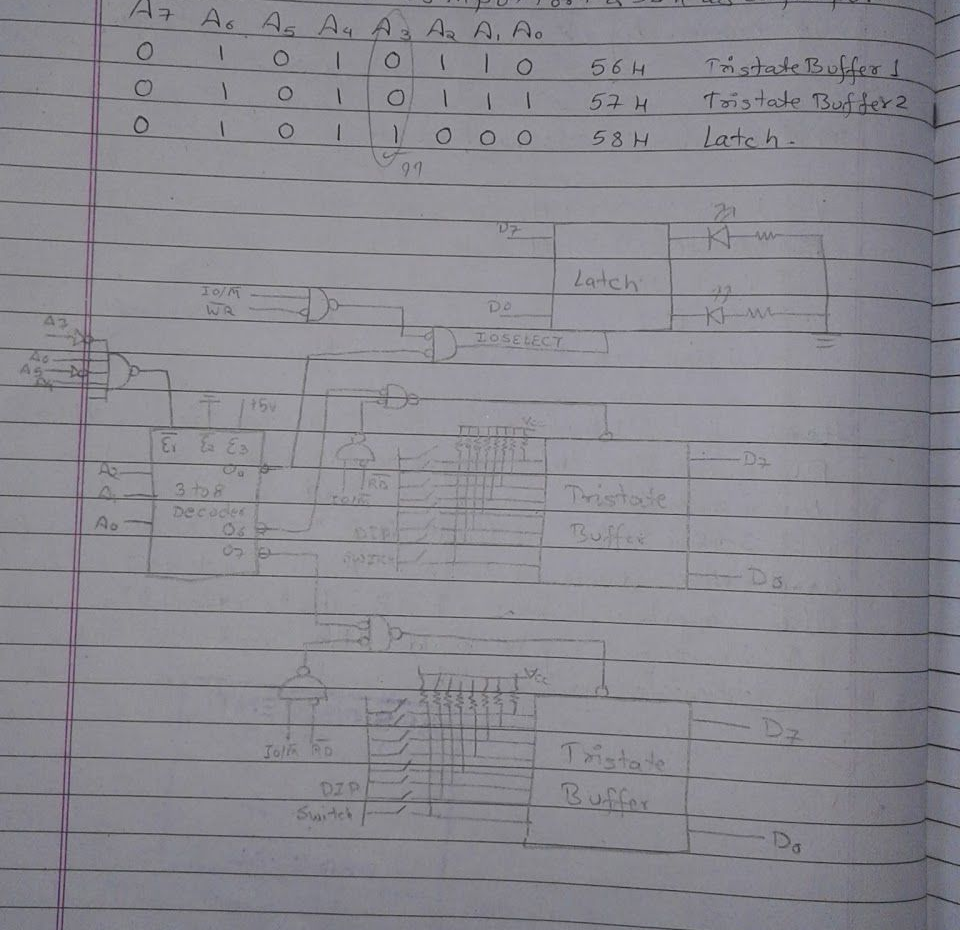 A7 A6 A5 A4 A3 A2 A1 A0
0 1 0 1 0 1 1 0 56H Tristate Buffer 1
0 1 0 1 0 1 1 1 57H Tristate Buffer 2
0 1 0 1 1 0 0 0 58H Latch.
??
D7
Latch
D0
IO/M̅
W̅R̅
IOSELECT
A7
A6
A5
A4
+5V
E̅1 E̅2 E3
O0
A2
A1
A0
3 to 8
Decoder
O6
O7
IO/M̅ R̅D̅
Vcc
DIP
Switch
Tristate
Buffer
D7
D0
IO/M̅ R̅D̅
Vcc
DIP
Switch
Tristate
Buffer
D7
D0